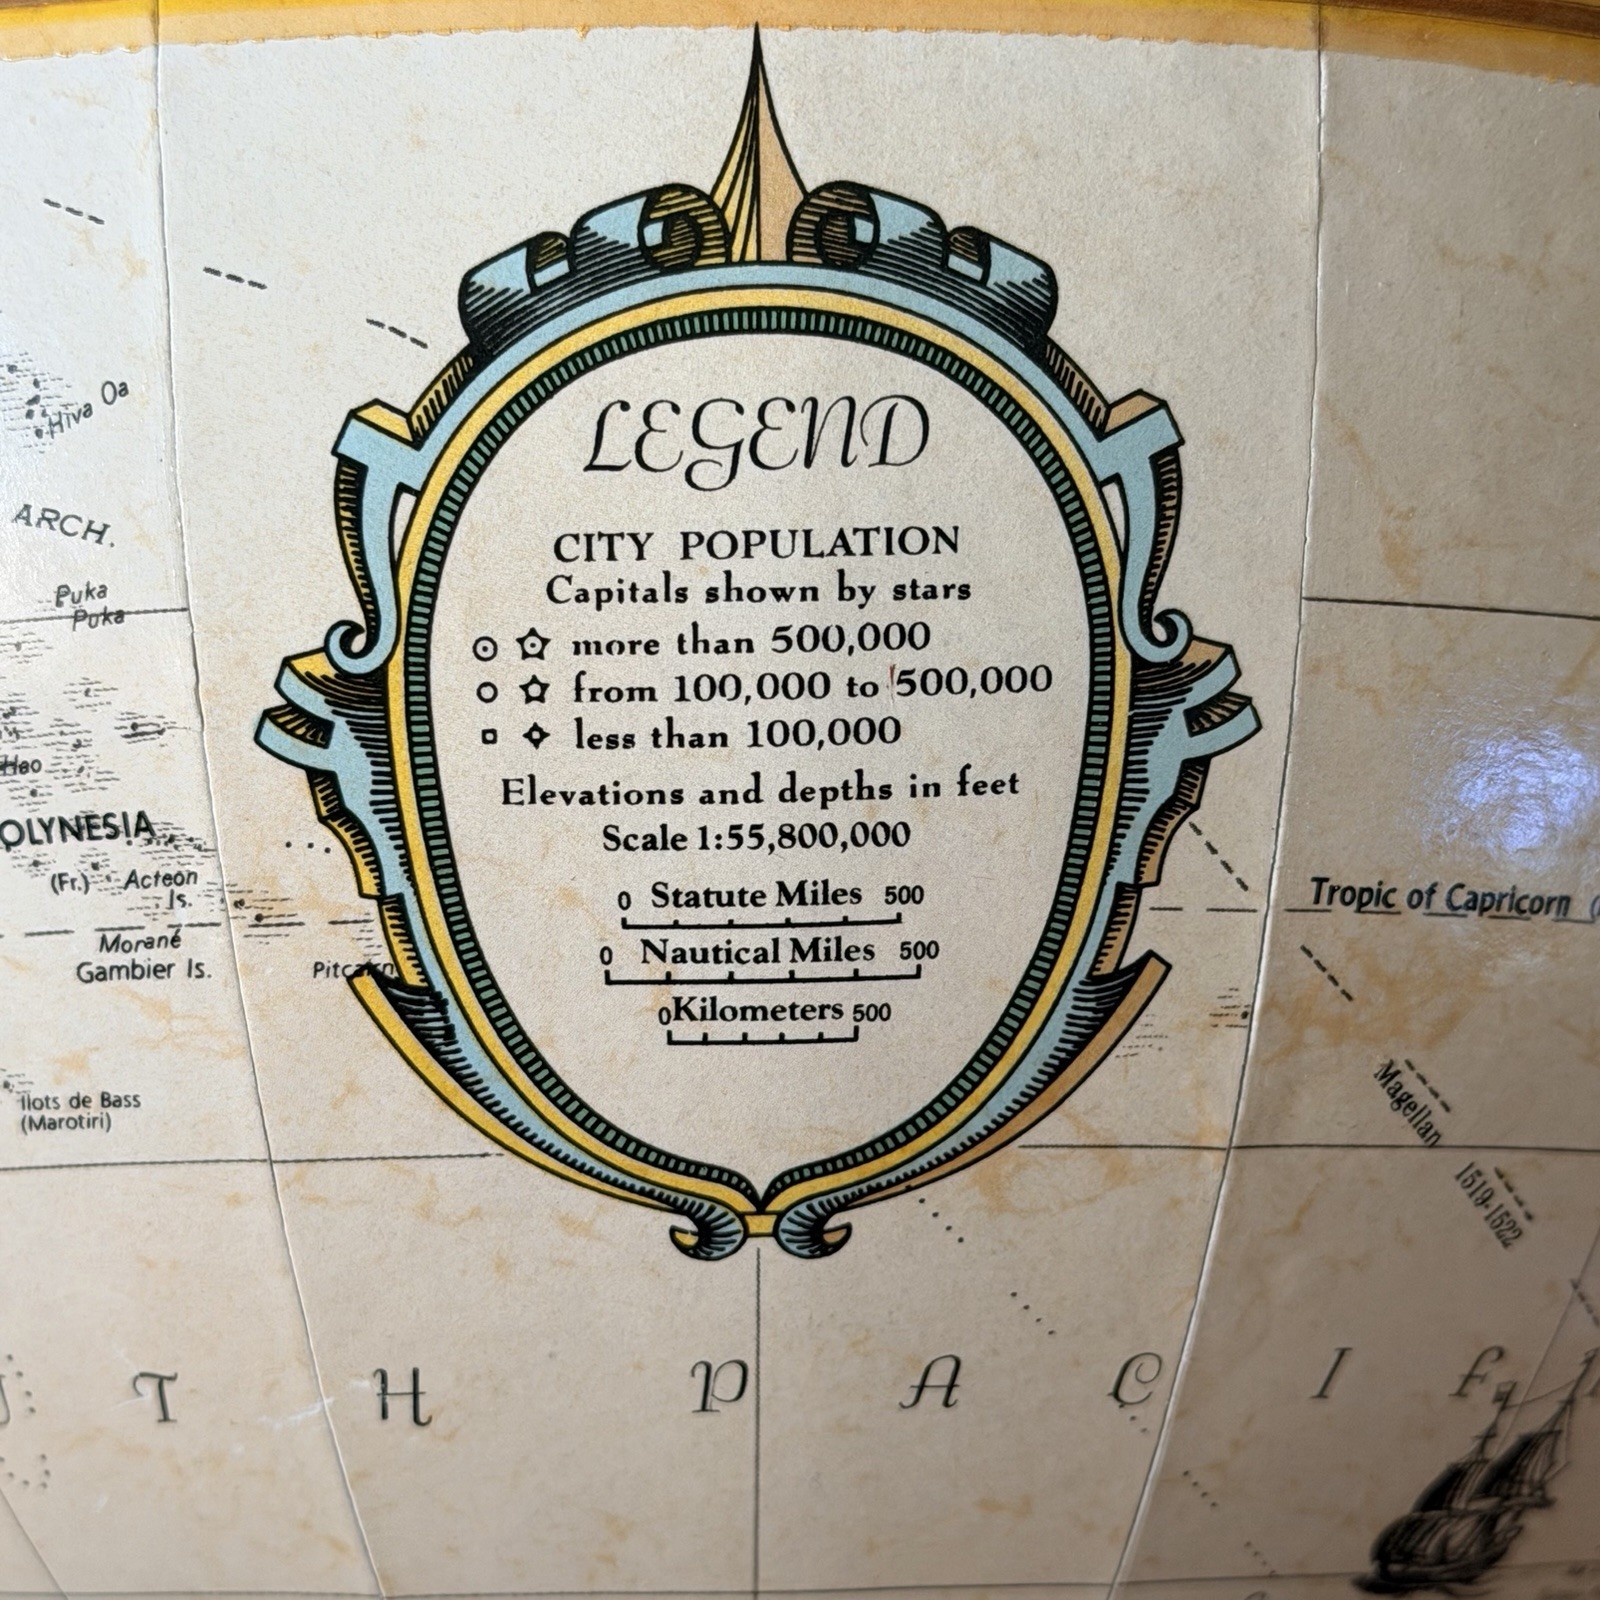 Hiva Oa
ARCH.
Puka
Puka
Hao
OLYNESIA
(Fr.)
Acteon
Is.
Morané
Gambier Is.
Pitcairn
Ilots de Bass
(Marotiri)
LEGEND
CITY POPULATION
Capitals shown by stars
more than 500,000
from 100,000 to 500,000
less than 100,000
Elevations and depths in feet
Scale 1:55,800,000
0 Statute Miles 500
0 Nautical Miles 500
0 Kilometers 500
Tropic of Capricorn (
Magellan
1519-1522
T H P A C I F